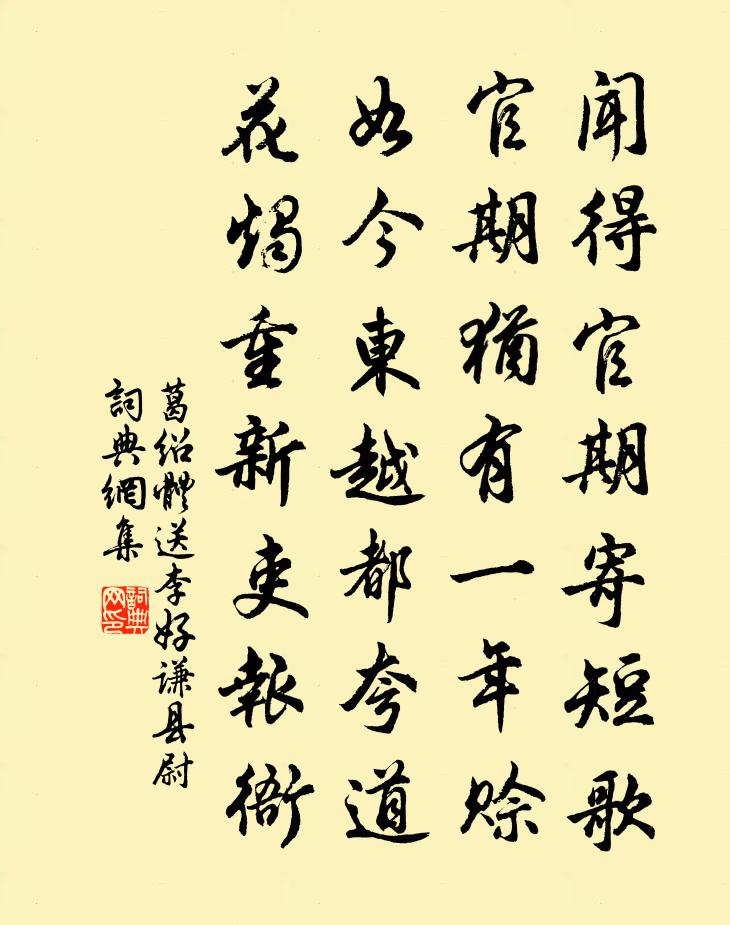 闻得官期寄短歌
官期猶有一年賒
如今東越都夸道
花燭重新吏報衙
葛绍體送李好谦县尉
詞典網集
詞典网印